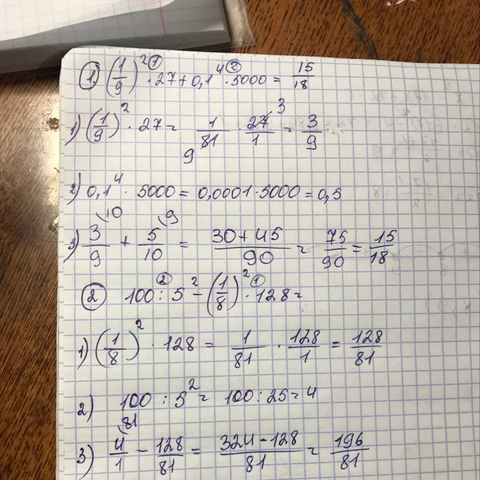 ① (1/9)² · 27 + 0,1⁴ · 5000 = 15/18
1) (1/9)² · 27 = 1/81 · 27/1 = 3/9
2) 0,1⁴ · 5000 = 0,0001 · 5000 = 0,5
3) 3/9 + 5/10 = (30+45)/90 = 75/90 = 15/18
② 100 : 5² - (1/8)² · 128 =
1) (1/8)² · 128 = 1/81 · 128/1 = 128/81
2) 100 : 5² = 100 : 25 = 4
3) 4/1 - 128/81 = (324-128)/81 = 196/81